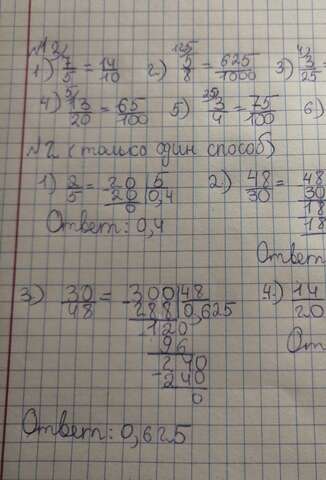 1) 7/5 = 14/10 2) 125 5/8 = 625/1000 3) 3/25 =
4) 5 13/20 = 65/100 5) 25 3/4 = 75/100 6)
№2 (только один способ)
1) 2/5 = 20 | 5 2) 48/30 = 48
20 | 0,4 30
0 18
Ответ: 0,4 18
Ответ
3) 30/48 = 300 | 48 4) 14/20
288 | 0,625
120 От
96
240
-240
0
Ответ: 0,625